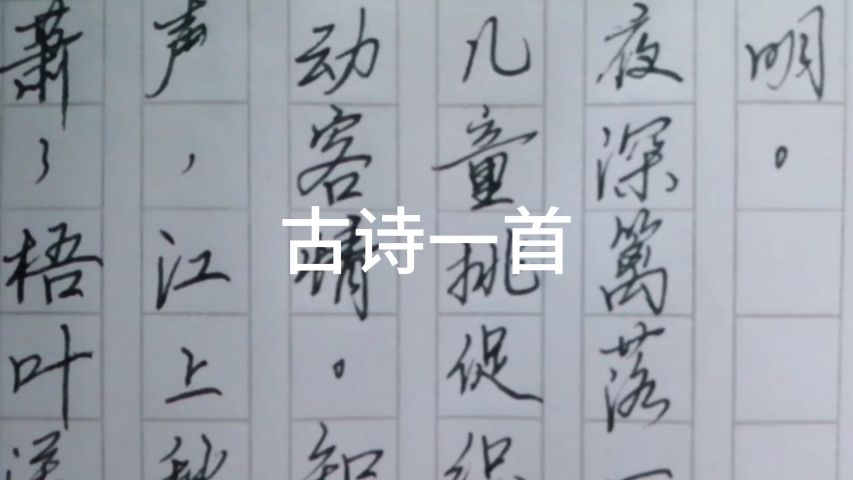 萧々梧叶送
声，江上秋
动客情。知
儿童挑促织
夜深篱落一
明。
古诗一首